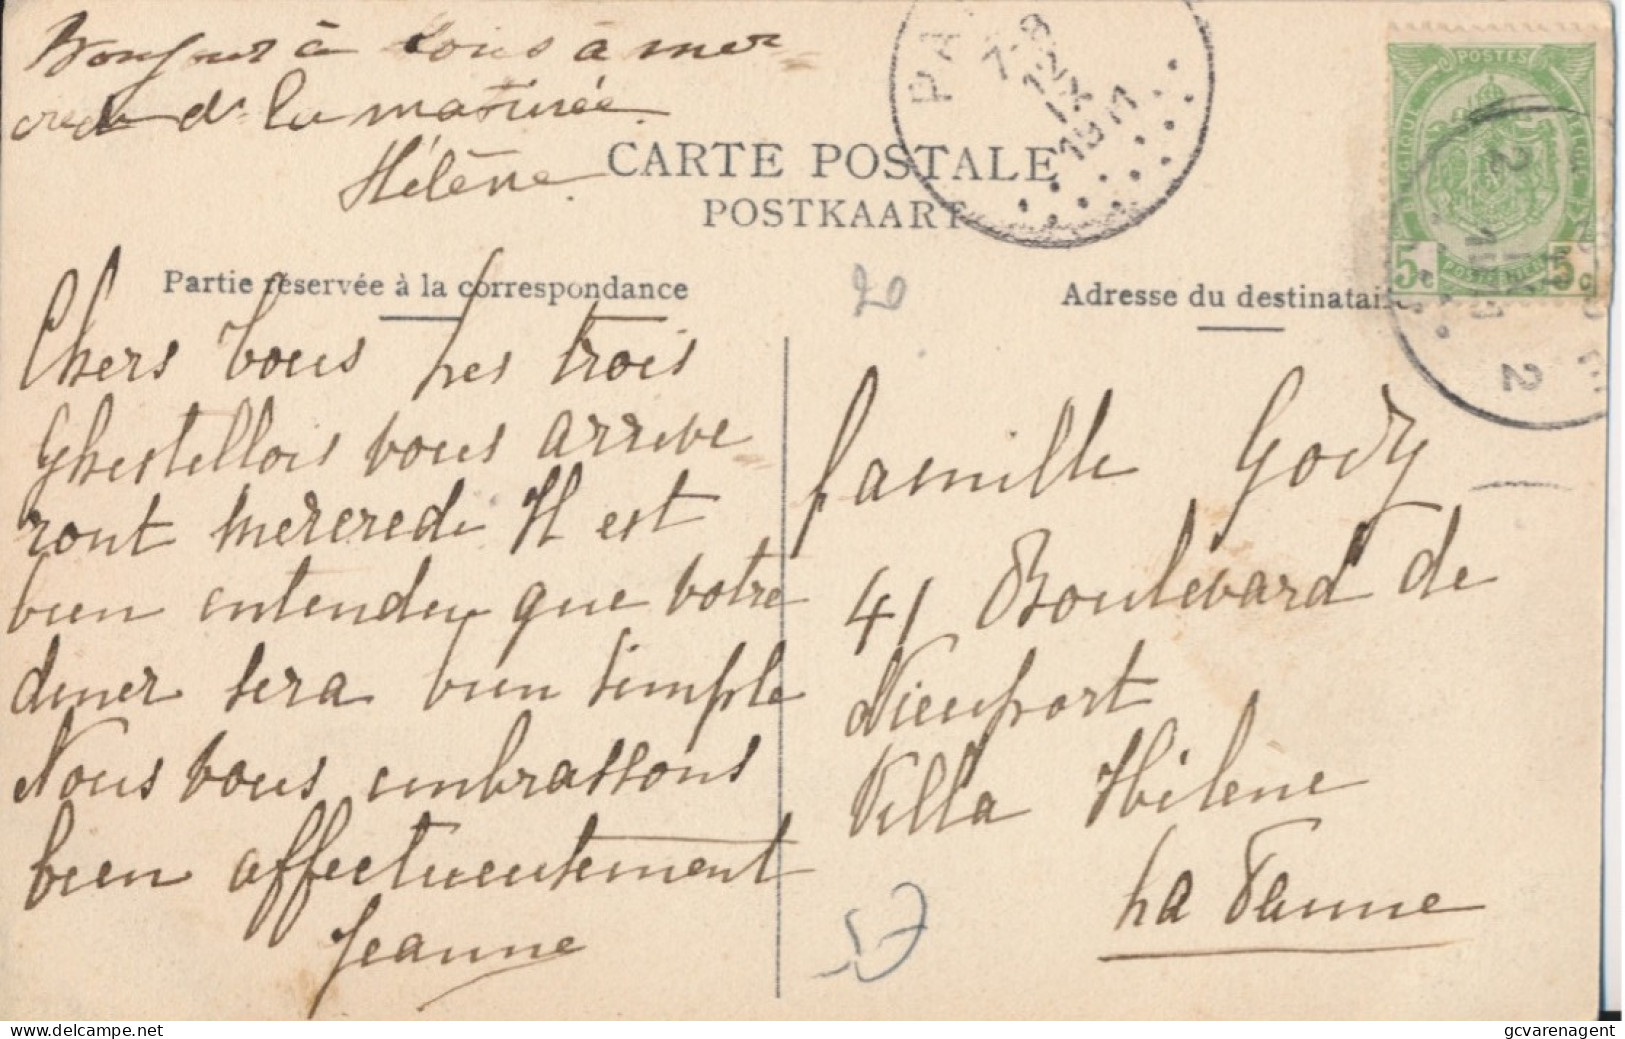 Bonjour à tous à mer
credi de la matinée
Hélène
CARTE POSTALE
POSTKAART
Partie réservée à la correspondance
Adresse du destinataire
PA
7-8
12
IX
1911
POSTES
BELGIQUE
5c
POSTERIJEN
5c
20
Chers Vous Les trois
Ghestellois vous arrive
ront mercredi Il est
bien entendu que votre
diner sera bien simple
Nous vous embrassons
bien affectueusement
Jeanne
famille Gody
41 Boulevard de
Nieuport
Villa Hélène
La Panne
delcampe.net
gcvarenagent